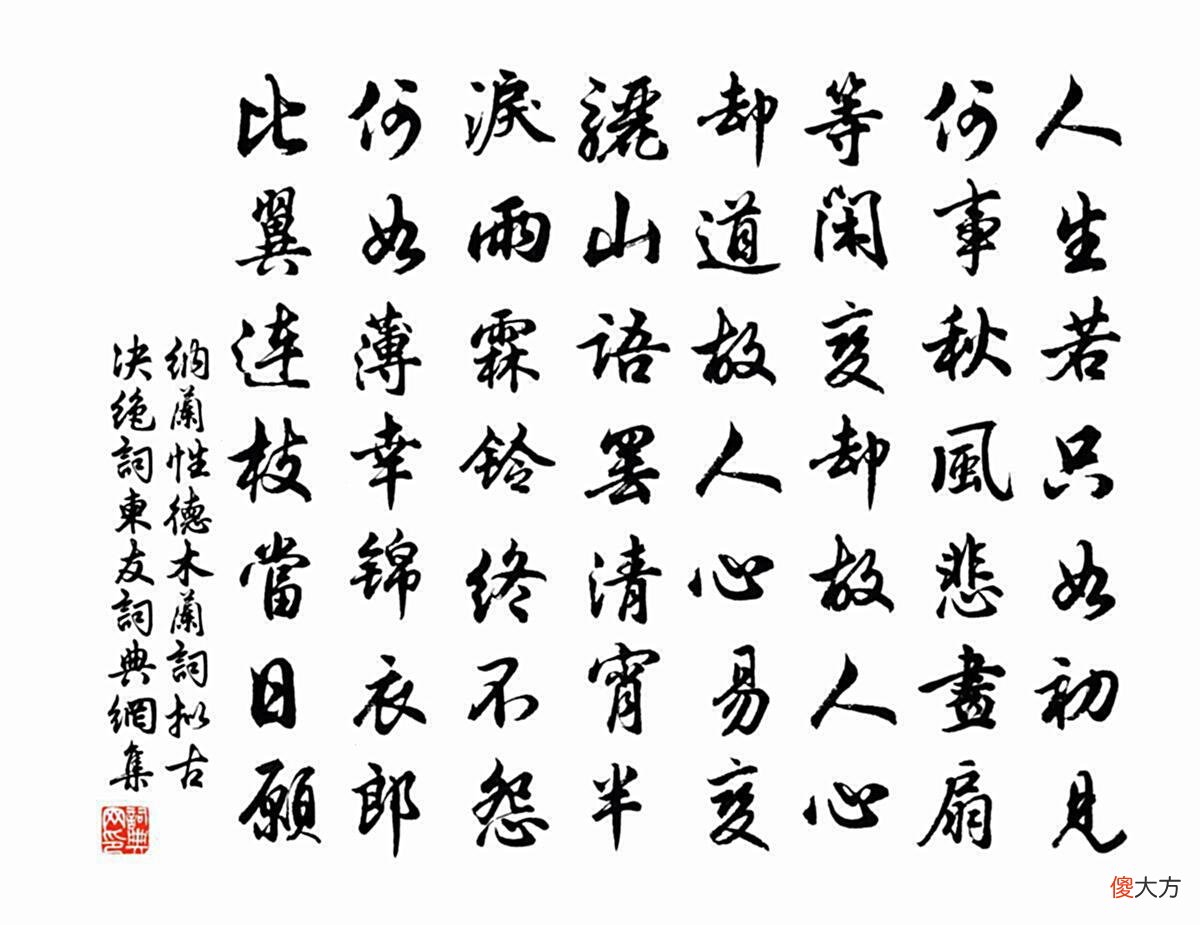 人生若只如初見
何事秋風悲畫扇
等閑变却故人心
却道故人心易变
驪山語罷清宵半
淚雨霖鈴終不怨
何如薄幸錦衣郎
比翼連枝當日願
納蘭性德木蘭詞拟古
决絶詞東友詞典網集
詞典网印
傻大方